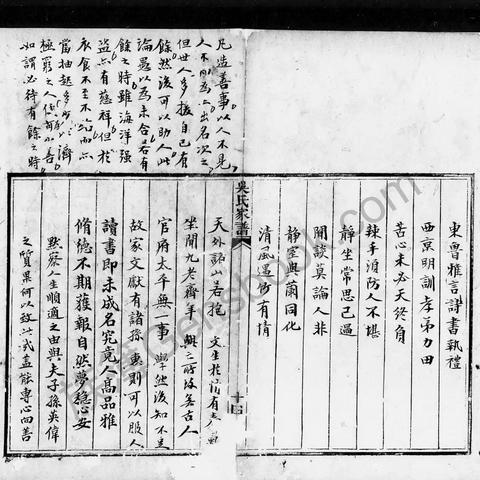 東魯雅言詩書執禮
西京明訓孝弟力田
苦心未必天終負
辣手須防人不堪
靜坐常思己過
閒談莫論人非
靜室與蘭同化
清風與竹有情
吳氏家譜
天外諸山若抱
坐間九老齊
官府太平無一事 學然後知不足
故家文獻有諸孫 惠則可以服人
讀書即未成名究竟人高品雅
脩德不期獲報自然夢穩心安
默察人生順適之由與夫子孫英偉
之質果何以致 孟能專心向善
凡造善事以人不見
人不聞為 出名次之
但世人多援自己有
餘然後可以助人此
論愚以為未合若有
餘之時雖海洋強
盜亦有慈祥但於
衣食不至不給而亦
當抽越多少以濟
極窮之人 善
如謂必待有餘之時